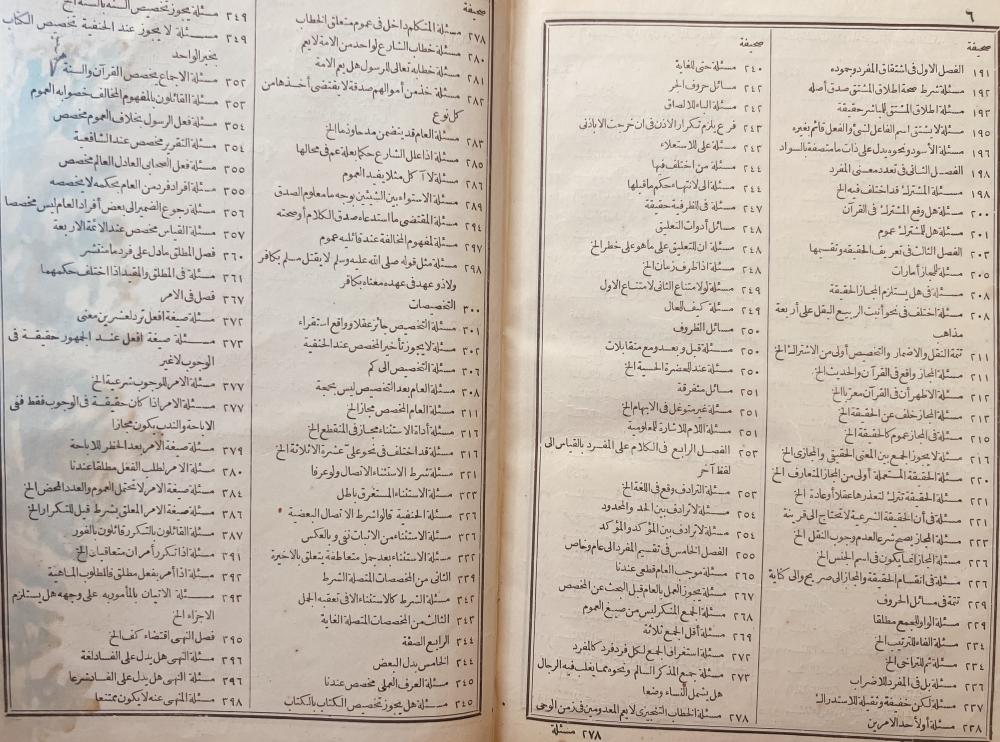 ٦
صحيفة
١٩١ الفصل الاول فى اشتقاق المفرد وجموده
١٩٢ مسئلة شرط صحة اطلاق المشتق صدق أصله
١٩٢ مسئلة اطلاق المشتق للمباشر حقيقة
١٩٥ مسئلة لا يشتق اسم الفاعل لشئ والفعل قائم بغيره
١٩٦ مسئلة الأسود ونحوه يدل على ذات ما متصفة بالسواد
١٩٨ الفصل الثانى فى تعدد معنى المفرد
١٩٨ مسئلة المشترك قد اختلف فيه الخ
٢٠٠ مسئلة هل وقع المشترك فى القرآن
٢٠١ مسئلة هل للمشترك عموم
٢٠٣ الفصل الثالث فى تعريف الحقيقة وتقسيمها
٢٠٥ مسئلة للمجاز أمارات
٢٠٨ مسئلة فى هل يستلزم المجاز الحقيقة
٢٠٨ مسئلة اختلف فى نحو أنبت الربيع البقل على أربعة
مذاهب
٢١١ تتمة النقل والاضمار والتخصيص أولى من الاشتراك الخ
٢١١ مسئلة المجاز واقع فى القرآن والحديث الخ
٢١٢ مسئلة الاظهر أن فى القرآن معربا الخ
٢١٣ مسئلة المجاز خلف عن الحقيقة الخ
٢١٥ مسئلة فى المجاز عموم كالحقيقة الخ
٢١٦ مسئلة لا يجوز الجمع بين المعنى الحقيقى والمجازى الخ
٢٢٠ مسئلة الحقيقة المستعملة أولى من المجاز المتعارف الخ
٢٢١ مسئلة الحقيقة تترك لتعذرها عقلا وعادة الخ
٢٢١ مسئلة فى أن الحقيقة الشرعية لا تحتاج الى قرينة
٢٢٣ مسئلة المجاز يصح شرعا لعدم وجوب النقل الخ
٢٢٦ مسئلة المجاز انما يكون فى اسم الجنس الخ
٢٢٦ مسئلة فى انقسام الحقيقة والمجاز الى صريح والى كناية
٢٢٩ تتمة فى مسائل الحروف
٢٢٩ مسئلة الواو للجمع مطلقا
٢٣٤ مسئلة الفاء للترتيب الخ
٢٣٤ مسئلة ثم للتراخى الخ
٢٣٦ مسئلة بل فى المفرد للاضراب
٢٣٧ مسئلة لكن خفيفة وثقيلة للاستدراك
٢٣٨ مسئلة أو لأحد الامرين
صحيفة
٢٤٠ مسئلة حتى للغاية
٢٤٢ مسائل حروف الجر
٢٤٢ مسئلة الباء للالصاق
٢٤٣ فرع يلزم تكرار الاذن فى ان خرجت الا باذنى
٢٤٣ مسئلة على للاستعلاء
٢٤٤ مسئلة من اختلف فيها
٢٤٤ مسئلة الى لانتهاء حكم ما قبلها
٢٤٧ مسئلة فى للظرفية حقيقة
٢٤٨ مسائل أدوات التعليق
٢٤٨ مسئلة ان للتعليق على ما هو على خطر الخ
٢٤٨ مسئلة اذا ظرف زمان الخ
٢٤٩ مسئلة لو لامتناع الثانى لامتناع الاول
٢٤٩ مسئلة كيف للحال
٢٥٠ مسائل الظروف
٢٥٠ مسئلة قبل وبعد ومع متقابلات
٢٥٠ مسئلة عند للحضرة الحسية الخ
٢٥١ مسائل متفرقة
٢٥١ مسئلة غير متوغل فى الابهام الخ
٢٥١ مسئلة اللام للاشارة للمعلومية
٢٥٣ الفصل الرابع فى الكلام على المفرد بالقياس الى
لفظ آخر
٢٥٣ مسئلة الترادف وقع فى اللغة الخ
٢٥٤ مسئلة لا ترادف بين الحد والمحدود
٢٥٤ مسئلة لا ترادف بين المؤكد والمؤكد
٢٥٥ الفصل الخامس فى تقسيم المفرد الى عام وخاص
٢٦٥ مسئلة موجب العام قطعى عندنا
٢٦٧ مسئلة يجوز العمل بالعام قبل البحث عن المخصص
٢٦٨ مسئلة الجمع المنكر ليس من صيغ العموم
٢٦٩ مسئلة أقل الجمع ثلاثة
٢٧٢ مسئلة استغراق الجمع لكل فرد فرد كالمفرد
٢٧٣ مسئلة جمع المذكر السالم ونحوه مما يغلب فيه الرجال
هل يشمل النساء وضعا
٢٧٨ مسئلة الخطاب التنجيزى لا يعم المعدومين فى زمن الوحى
٢٧٨ مسئلة
صحيفة
٢٧٨ مسئلة المتكلم داخل فى عموم متعلق الخطاب
٢٨٠ مسئلة خطاب الشارع لواحد من الامة لا يعم
٢٨١ مسئلة خطابه تعالى للرسول هل يعم الامة
٢٨٢ مسئلة خذ من أموالهم صدقة لا يقتضى أخذها من
كل نوع
٢٨٣ مسئلة العام قد يتضمن مدحا وذما الخ
٢٨٥ مسئلة اذا علل الشارع حكما بعلة عم فى محالها
٢٨٦ مسئلة لا آكل مثلا يفيد العموم
٢٨٩ مسئلة الاستواء بين الشيئين بوجه ما معلوم الصدق
٢٩٤ مسئلة المقتضى ما استدعاه صدق الكلام أو صحته
٢٩٧ مسئلة لمفهوم المخالفة عند قائليه عموم
٢٩٨ مسئلة مثل قوله صلى الله عليه وسلم لا يقتل مسلم بكافر
ولا ذو عهد فى عهده معناه بكافر
٣٠٠ التخصيصات
٣٠١ مسئلة التخصيص جائز عقلا وواقع استقراء
٣٠٢ مسئلة لا يجوز تأخير المخصص عند الحنفية
٣٠٦ مسئلة التخصيص الى كم
٣٠٨ مسئلة العام بعد التخصيص ليس بحجة
٣١١ مسئلة العام المخصص مجاز الخ
٣١٦ مسئلة أداة الاستثناء مجاز فى المنقطع الخ
٣١٦ مسئلة قد اختلف فى نحو على عشرة الا ثلاثة الخ
٣٢١ مسئلة شرط الاستثناء الاتصال ولو عرفا
٣٢٣ مسئلة الاستثناء المستغرق باطل
٣٢٦ مسئلة الحنفية قالوا شرط الاتصال البعضية
٣٢٦ مسئلة الاستثناء من الاثبات نفى وبالعكس
٣٣٢ مسئلة الاستثناء بعد جمل متعاطفة يتعلق بالاخيرة
٣٣٩ الثانى من المخصصات المتصلة الشرط
٣٤٢ مسئلة الشرط كالاستثناء الا فى تعقبه الجمل
٣٤٣ الثالث من المخصصات المتصلة الغاية
٣٤٤ الرابع الصفة
٣٤٤ الخامس بدل البعض
٣٤٥ مسئلة العرف العملى مخصص عندنا
٣٤٥ مسئلة هل يجوز تخصيص الكتاب بالكتاب
٣٤٩ مسئلة يجوز تخصيص السنة بالسنة الخ
٣٤٩ مسئلة لا يجوز عند الحنفية تخصيص الكتاب
بخبر الواحد
٣٥٢ مسئلة الاجماع يخصص القرآن والسنة
٣٥٣ مسئلة القائلون بالمفهوم المخالف خصوا به العموم
٣٥٤ مسئلة فعل الرسول بخلاف العموم مخصص
٣٥٤ مسئلة التقرير مخصص عند الشافعية
٣٥٥ مسئلة فعل الصحابى العادل العالم مخصص
٣٥٥ مسئلة افراد فرد من العام بحكمه لا يخصصه
٣٥٦ مسئلة رجوع الضمير الى بعض أفراد العام ليس مخصصا
٣٥٧ مسئلة القياس مخصص عند الائمة الاربعة
٣٦٠ فصل المطلق ما دل على فرد ما منتشر
٣٦١ مسئلة فى المطلق والمقيد اذا اختلف حكمهما
٣٦٧ فصل فى الامر
٣٧٢ مسئلة صيغة افعل ترد لعشرين معنى
٣٧٣ مسئلة صيغة افعل عند الجمهور حقيقة فى
الوجوب لا غير
٣٧٧ مسئلة الامر للوجوب شرعية الخ
٣٧٧ مسئلة الامر اذا كان حقيقة فى الوجوب فقط ففى
الاباحة والندب يكون مجازا
٣٧٩ مسئلة صيغة الامر بعد الحظر للاباحة
٣٨٠ مسئلة الامر لطلب الفعل مطلقا عندنا
٣٨٤ مسئلة صيغة الامر لا تحتمل العموم والعدد المحض الخ
٣٨٦ مسئلة صيغة الامر المعلق بشرط قيل للتكرار الخ
٣٨٧ مسئلة القائلون بالتكرار قائلون بالفور
٣٩١ مسئلة اذا تكرر أمران متعاقبان الخ
٣٩٢ مسئلة اذا أمر بفعل مطلق فالمطلوب الماهية
٣٩٣ مسئلة الاتيان بالمأمور به على وجهه هل يستلزم
الاجزاء الخ
٣٩٥ فصل النهى اقتضاء كف الخ
٣٩٦ مسئلة النهى هل يدل على الفساد لغة
٣٩٦ مسئلة النهى هل يدل على الفساد شرعا
٣٩٨ مسئلة المنهى عنه لا يكون ممتنعا